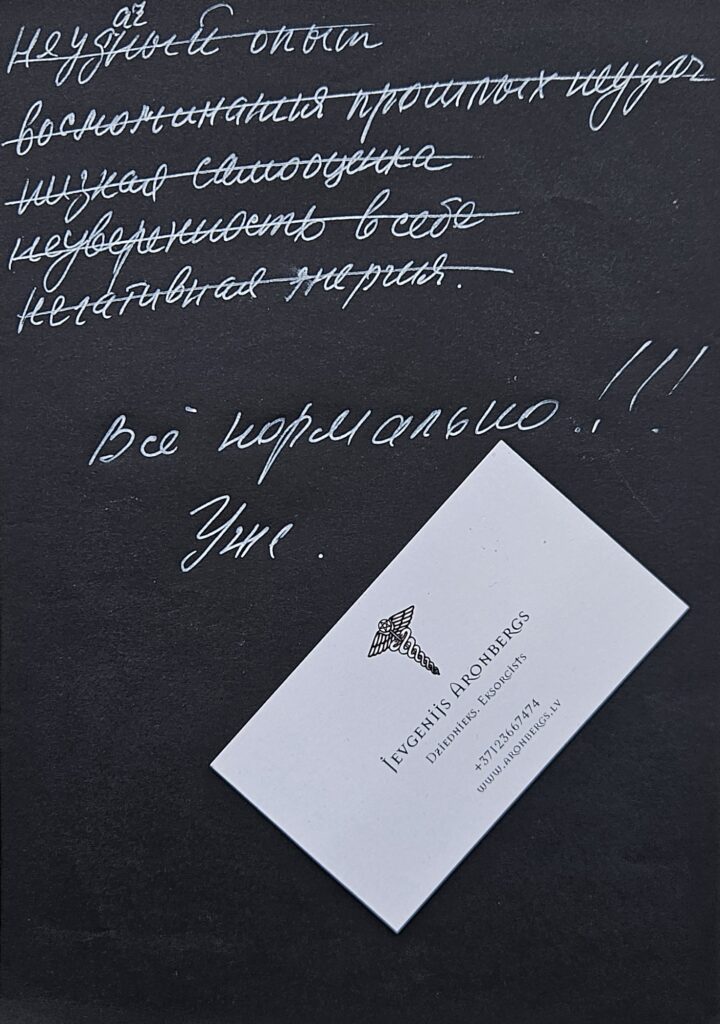 Неудачный опыт
воспоминания прошлых неудач
низкая самооценка
неуверенность в себе
негативная энергия.
Всё нормально!!!
Уже.
Jevgenijs Aronbergs
Dziednieks. Eksorcists
+37123667474
www.aronbergs.lv